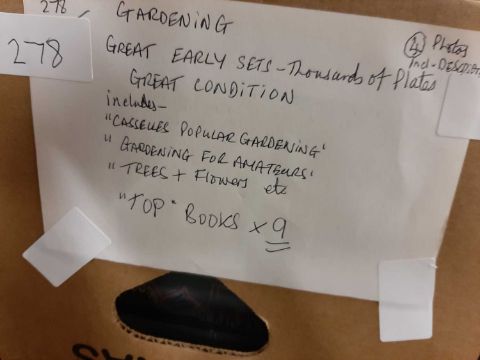 278
278
GARDENING
GREAT EARLY SETS - Thousands of Plates
GREAT CONDITION
includes -
"CASSELLES POPULAR GARDENING'
" GARDENING FOR AMATEURS'
" TREES + FLOWERS etc
"TOP" BOOKS x 9
4 Photos
incl-